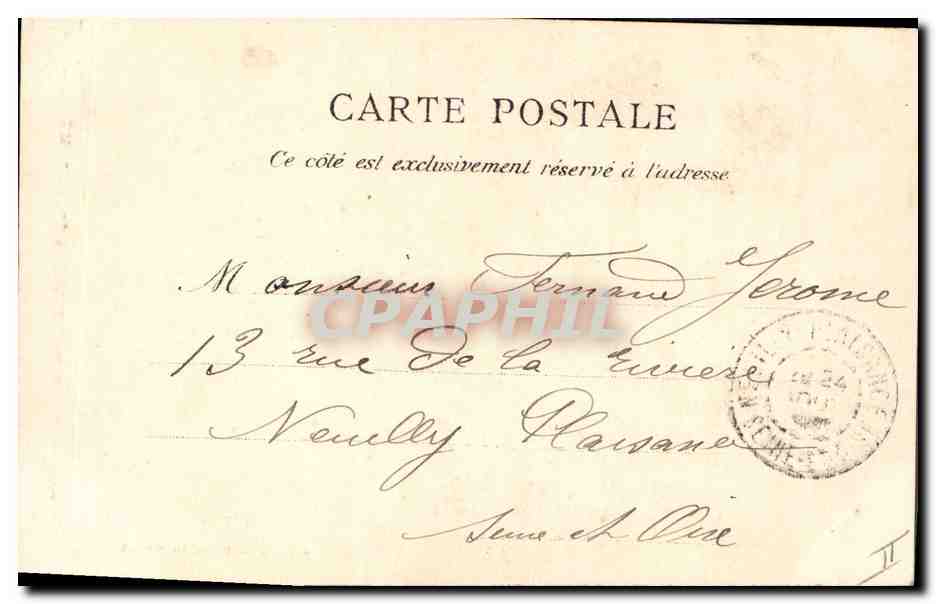 CARTE POSTALE
Ce côté est exclusivement réservé à l'adresse
Monsieur Fernand Jerome
CPAPHIL
13 rue De la rivière
Neuilly Plaisance
Seine et Oise
NEUILLY PLAISANCE
24
SEINE-ET-
II